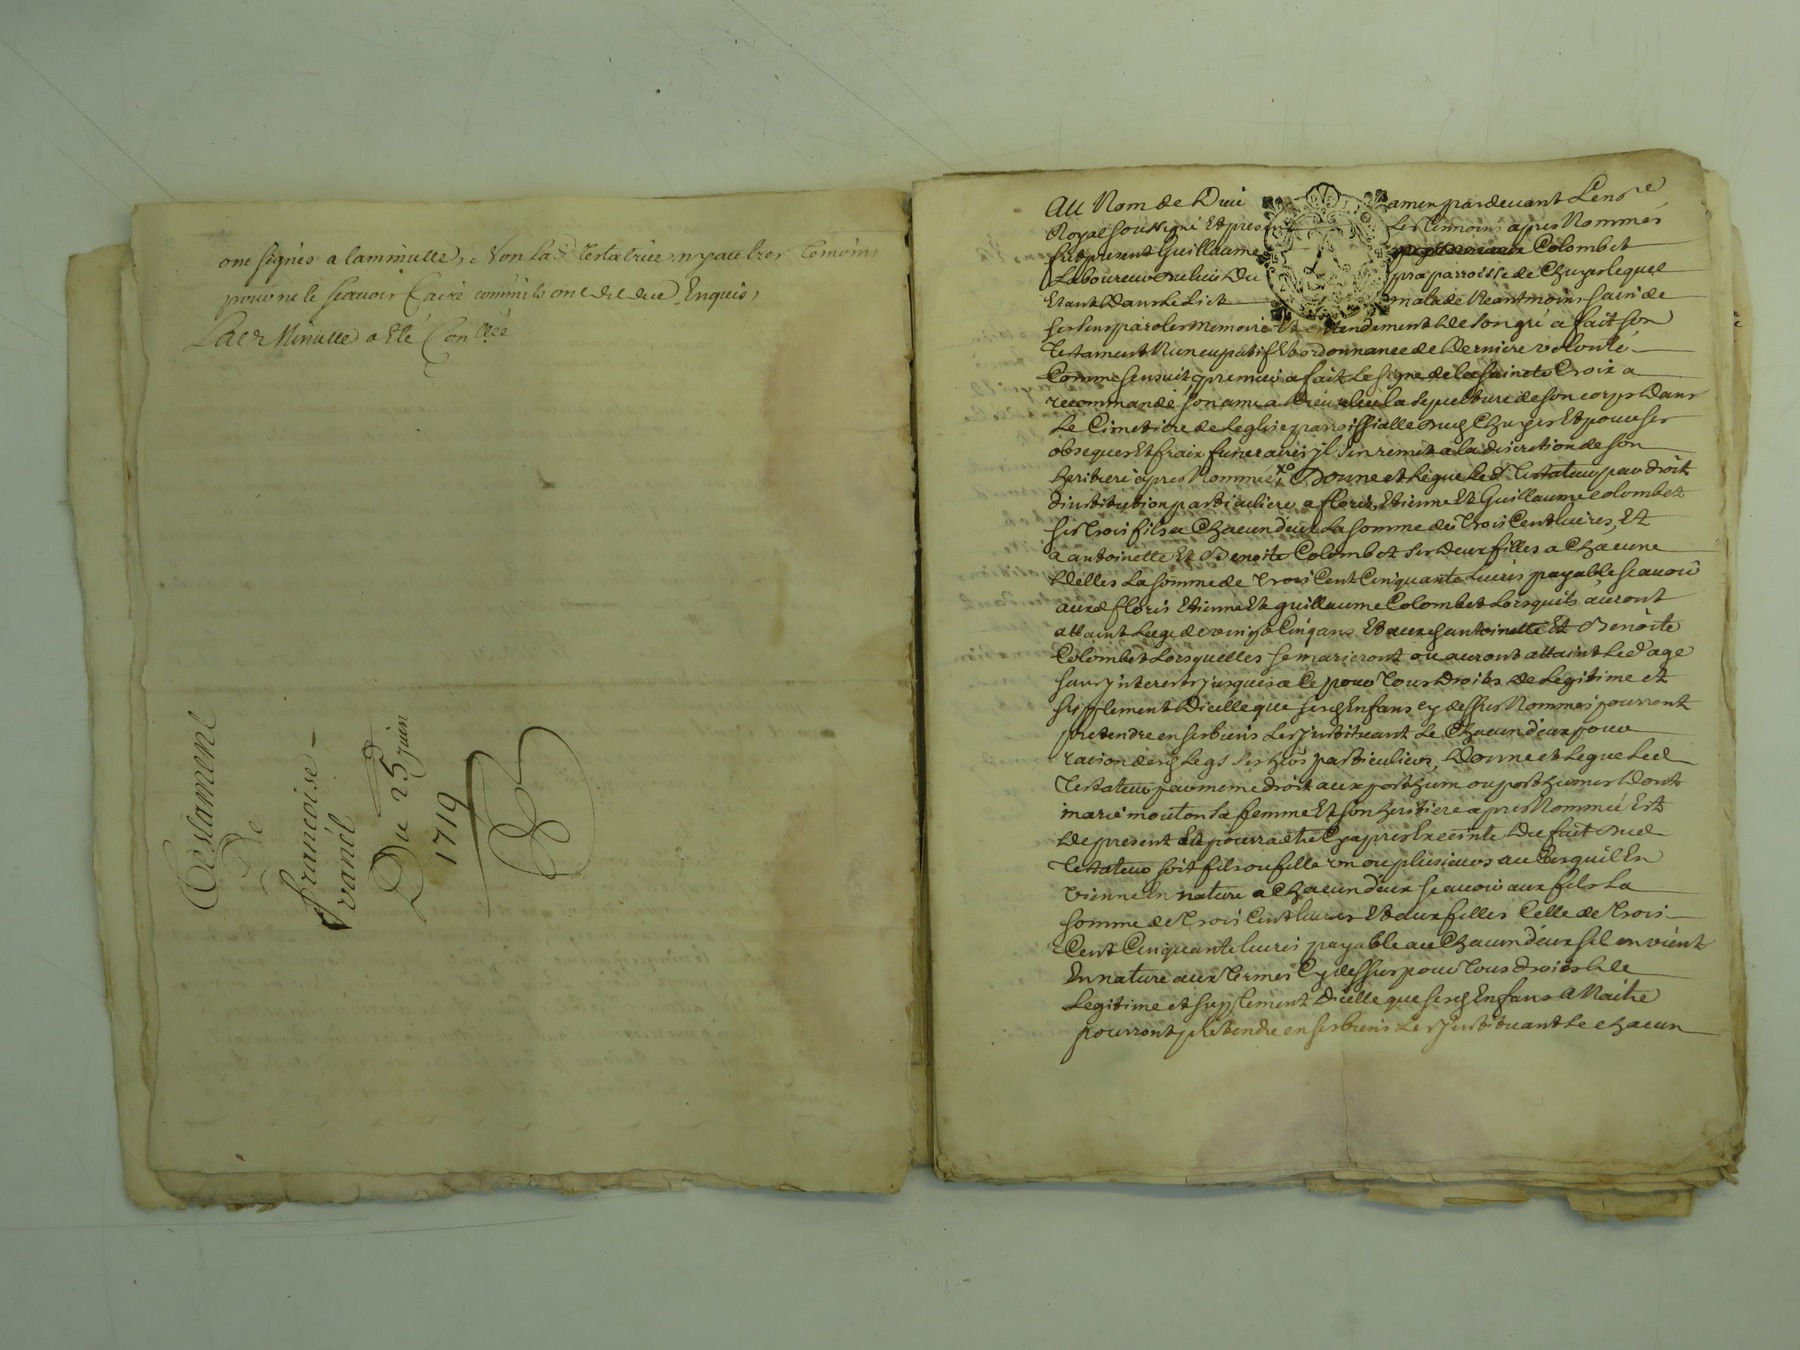 ont signés a la minutte, & non lad. testatrice ny autres temoins
pour ne le scavoir faire comm'ils ont dit due Enquis,
Lad. Minutte a Eté Con.lée
Testament
De
francoise
vanil
Du 25 juin
1719
Au Nom de Dieu amen pardevant Le nore
Royal soussigné Et present Les temoins apres Nommés
fut present Guillaume Colombet
Laboureur du lieu Du parroisse de Chuyer lequel
Etant Dans Le Lict malade Neantmoins sain de
ses sens paroles memoire Et entendement de son gré a fait son
testament Nuncupatif Et ordonnance de Derniere volonté
Comme sensuit premier a fait Le signe de la saincte Croix a
recommandé son ame a Dieu la sepulture de son corps Dans
Le Cimetiere de leglise parroissialle dud Chuyer Et pour ses
obseques Et fraix funeraires jl s'en remet a la discretion de son
heritiere apres Nommée, Donne et Legue Led. testateur par droit
d'institution particuliere a floris, Etienne Et Guillaume colombet
ses trois fils a Chacun deux La somme de trois Cent livres, Et
a antoinette Et Benoite Colombet ses Deux filles a Chacune
Delles La somme de trois Cent Cinquante livres payable scavoir
auxd floris Etienne Et guillaume Colombet Lorsquils auront
attaint Lage de vingt Cinq ans Et auxd antoinette Et Benoite
Colombet Lorsquelles se marieront ou auront attaint Led age
sans jnterest jusques a Ce pour tous Droits de Legitime et
supplement Dicelle que sesd Enfans cy dessus Nommés pourront
pretendre en ses biens Les jnstituant Le Chacun deux pour
raison desd Legs ses hers particuliers, Donne et Legue Led
testateur par meme droit aux posthume ou posthumes Dont
marie mouton sa femme Et son heritiere apres Nommée Est
De present Et pourra etre Cy apres Enceinte Du fait dud
testateur soit fils ou fille un ou plusieurs au Cas quil En
vienne En nature a Chacun deux scavoir aux fils La
somme de trois Cent livres Et aux filles Celle de trois
Cent Cinquante livres payable au Chacun d'eux sil en vient
En nature aux termes Cy dessus pour tous droits de
Legitime et supplement Dicelle que sesd Enfans a Naitre
pourront pretendre en ses biens Les jnstituant Le chacun